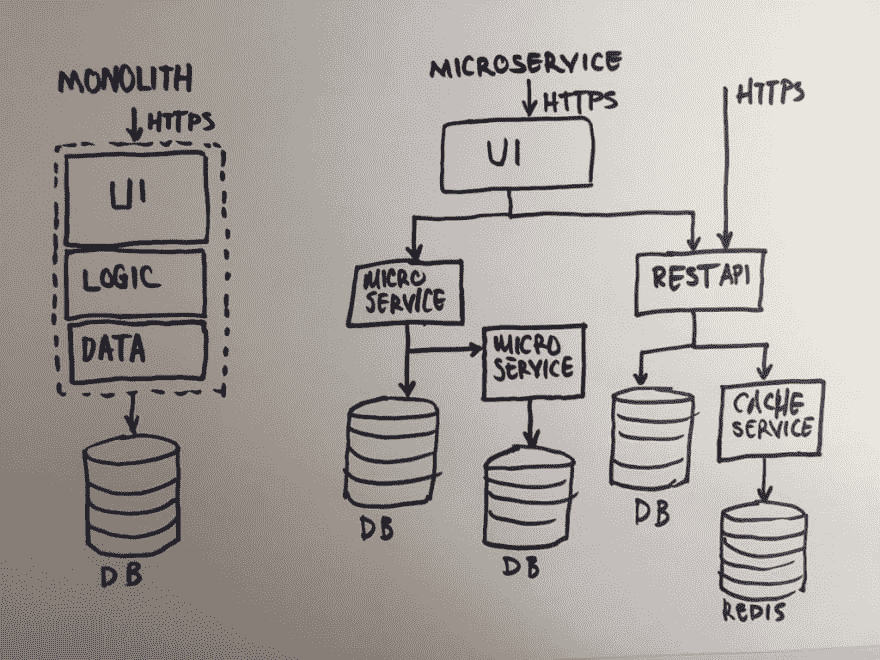 MONOLITH
HTTPS
UI
LOGIC
DATA
DB
MICROSERVICE
HTTPS
HTTPS
UI
MICRO
SERVICE
REST API
MICRO
SERVICE
CACHE
SERVICE
DB
DB
DB
REDIS